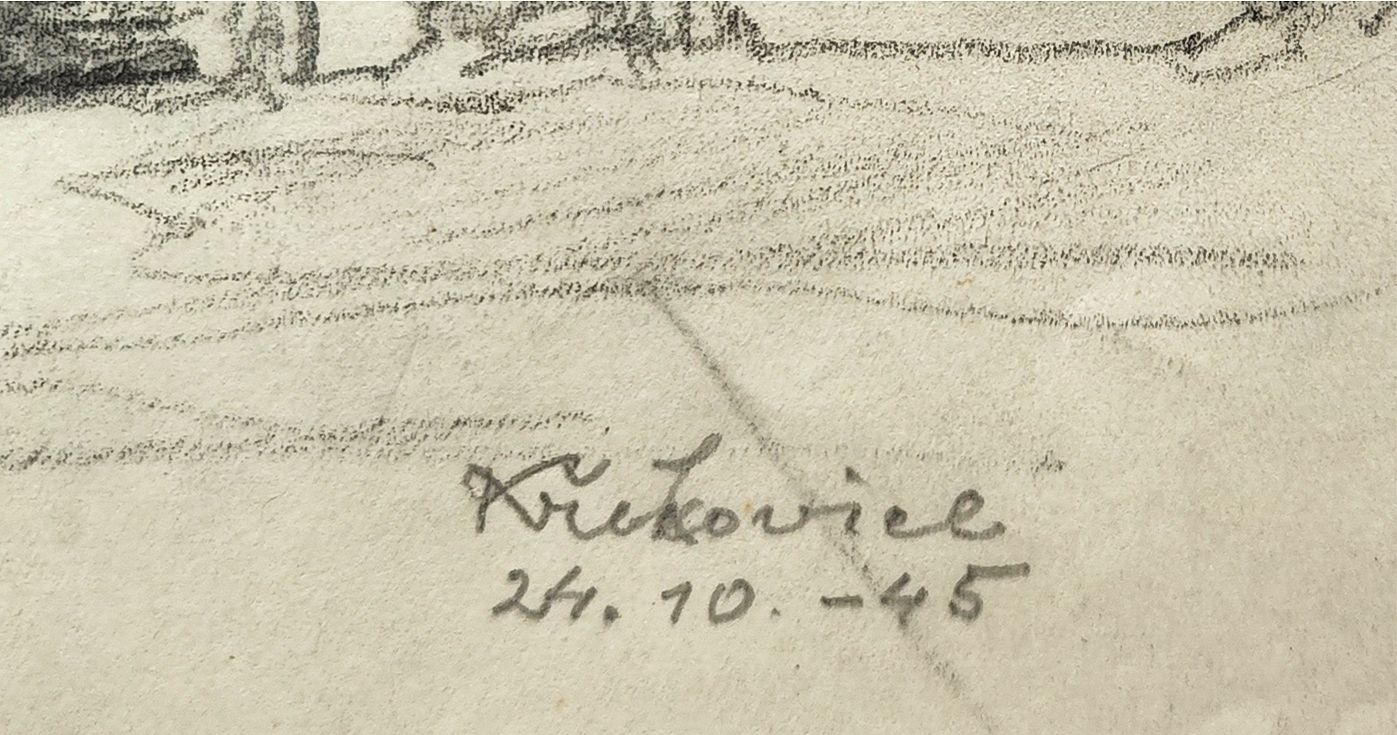 Krukovice
24. 10. -45